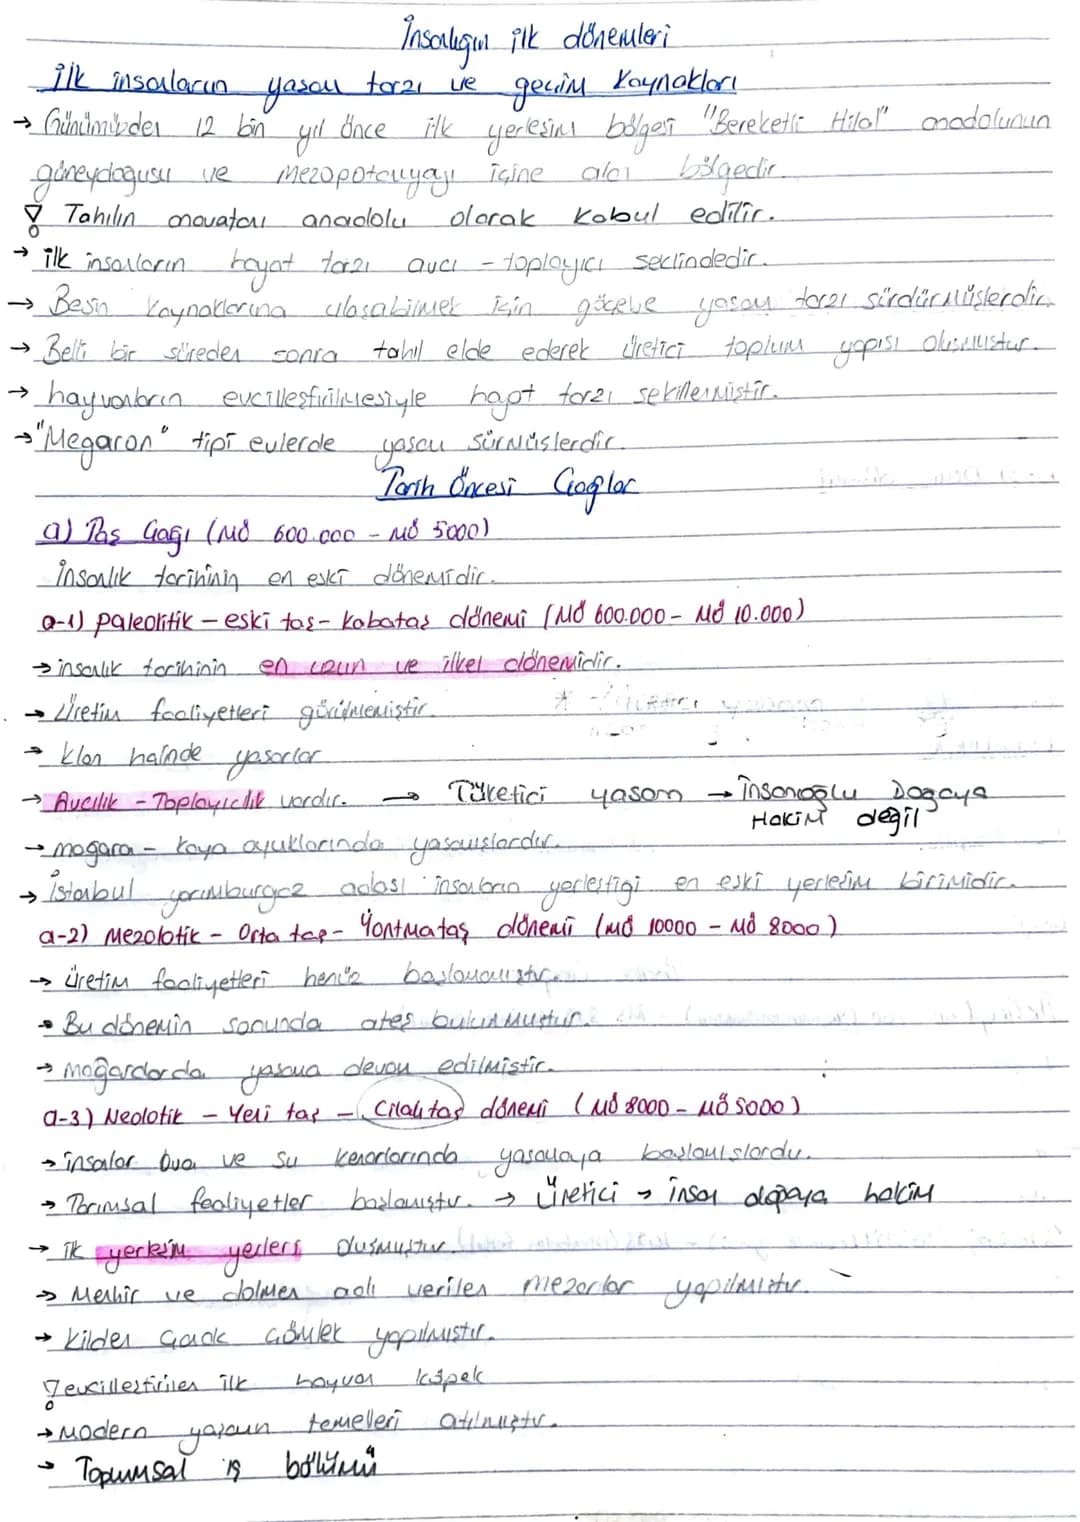 İnsanlığın ilk dönemleri
İlk insanların yaşam tarzı ve geçim kaynakları
→ Günümüzden 12 bin yıl önce ilk yerleşim bölgesi "Bereketli Hilal" anadolunun
güneydoğusu ve Mezopotamyayı içine alan bölgedir.
Tahılın anavatanı anadolu olarak kabul edilir.
→ ilk insanların hayat tarzı avcı - toplayıcı seclindedir.
→ Besin kaynaklarına ulaşabilmek için göçebe yaşam tarzı sürdürmüşlerdir.
→ Belli bir süreden sonra tahıl elde ederek üretici toplum yapısı oluşmuştur.
→ hayvanların evcilleştirilmesiyle hayat tarzı şekillenmiştir.
→ "Megaron" tipi evlerde yaşam sürmüşlerdir.
Tarih Öncesi Çağlar
a) Taş Çağı (MÖ 600.000 - MÖ 5000)
İnsanlık tarihinin en eski dönemidir.
a-1) paleolitik - eski taş - kabataş dönemi (MÖ 600.000 - MÖ 10.000)
→ insanlık tarihinin en uzun ve ilkel dönemidir.
→ Üretim faaliyetleri görülmemiştir.
→ klan halinde yaşarlar
→ Avcılık - Toplayıcılık vardır. → Tüketici yaşam → İnsanoğlu Doğaya
Hakim değil
→ mağara - kaya oyuklarında yaşamışlardır.
→ İstanbul yarımburgaz adası insanların yerleştiği en eski yerleşim birimidir.
a-2) Mezolotik - Orta taş - Yontmataş dönemi (MÖ 10000 - MÖ 8000)
→ üretim faaliyetleri henüz başlamamıştır.
→ Bu dönemin sonunda ateş bulunmuştur.
→ mağaralarda yaşama devam edilmiştir.
a-3) Neolotik - Yeni taş - Cilalıtaş dönemi (MÖ 8000 - MÖ 5000)
→ insanlar Ova ve su kenarlarında yaşamaya başlamışlardır.
→ Tarımsal fealiyetler başlamıştır. → Üretici → İnsan doğaya hakim
→ ilk yerleşim yerleri oluşmuştur.
→ Menhir ve dolmen adı verilen mezarlar yapılmıştır.
→ kilden Çanak Çömlek yapılmıştır.
evcilleştirilen ilk hayvan köpek
→ Modern yaşamın temelleri atılmıştır.
→ Toplumsal iş bölümü